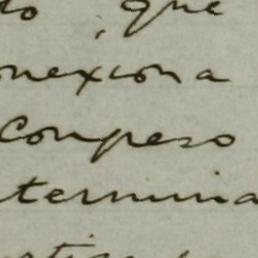 que
nexion a
Congreso
termina